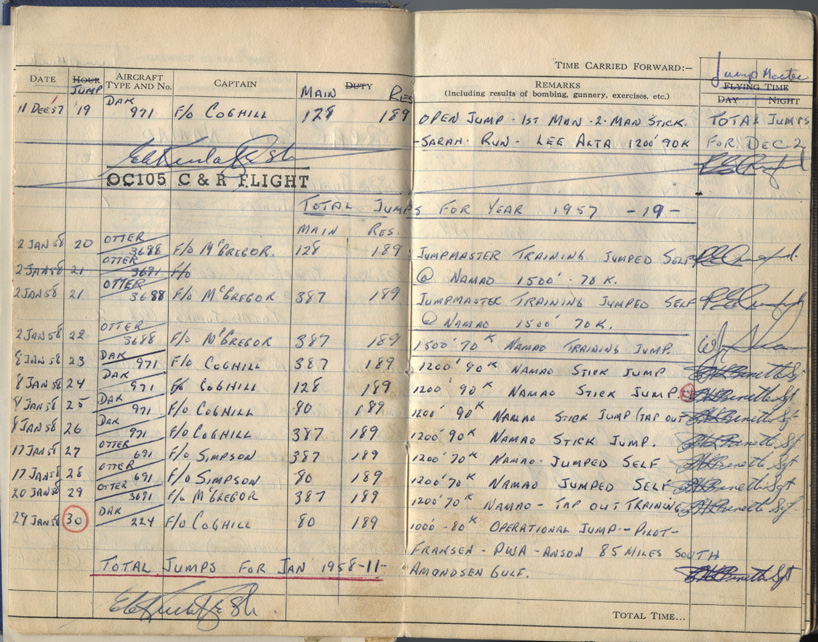 TIME CARRIED FORWARD:-
Jump Master
DATE HOUR JUMP AIRCRAFT TYPE AND No. CAPTAIN MAIN DUTY RES REMARKS (Including results of bombing, gunnery, exercises, etc.) FLYING TIME DAY NIGHT
11 DEC 57 19 DAK 971 F/O COGHILL 128 189 OPEN JUMP - 1ST MAN - 2 - MAN STICK. TOTAL JUMPS
-SARAH - RUN - LEE ALTA 1200' 90K FOR DEC. 2
OC105 C & R FLIGHT
TOTAL JUMPS FOR YEAR 1957 -19-
MAIN RES.
2 JAN 58 20 OTTER 3688 F/O McGREGOR. 128 189 JUMPMASTER TRAINING JUMPED SELF
@ NAMAO 1500' - 70K.
2 JAN 58 21 OTTER 3691 F/O
2 JAN 58 21 OTTER 3688 F/O McGREGOR 387 189 JUMPMASTER TRAINING JUMPED SELF
@ NAMAO 1500' 70K.
2 JAN 58 22 OTTER 3688 F/O McGREGOR 387 189 1500' 70K NAMAO TRAINING JUMP
8 JAN 58 23 DAK 971 F/O COGHILL 387 189 1200' 90K NAMAO STICK JUMP
8 JAN 58 24 DAK 971 COGHILL 128 189 1200' 90K NAMAO STICK JUMP
8 JAN 58 25 DAK 971 F/O COGHILL 80 189 1200' 90K NAMAO STICK JUMP (TAP OUT
8 JAN 58 26 DAK 971 F/O COGHILL 387 189 1200' 90K NAMAO STICK JUMP.
17 JAN 58 27 OTTER 691 F/O SIMPSON 387 189 1200' 70K NAMAO - JUMPED SELF
17 JAN 58 28 OTTER 691 F/O SIMPSON 80 189 1200' 70K NAMAO JUMPED SELF
20 JAN 58 29 OTTER 3691 F/O McGREGOR 387 189 1200' 70K NAMAO - TAP OUT TRAINING
29 JAN 58 30 DAK 224 F/O COGHILL 80 189 1000 - 80K OPERATIONAL JUMP - PILOT -
FRANSEN - PWA - ANSON 85 MILES SOUTH
TOTAL JUMPS FOR JAN 1958 -11- AMONDSEN GULF.
TOTAL TIME...